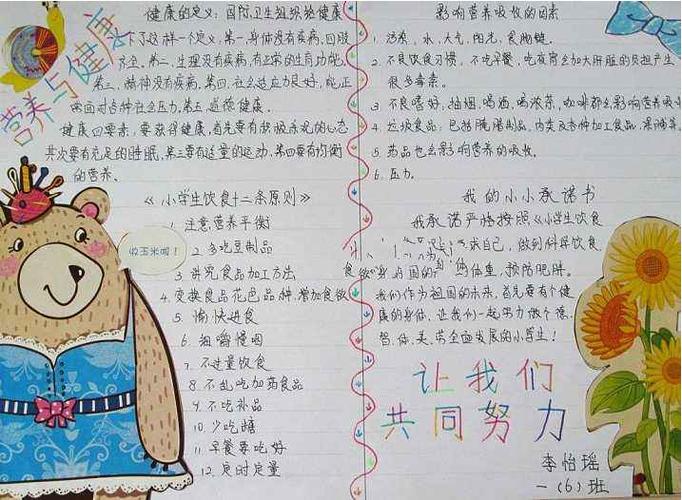 营养与健康
健康的定义：国际卫生组织给健康
下了这样一个定义。第一，身体没有疾病，四肢
齐全。第二，生理没有疾病，有正常的生育功能。
第三，精神没有疾病。第四，社会适应力良好，能正
常面对各种社会压力。第五，道德健康。
健康四要素，要获得健康，首先要有积极乐观的心态
其次要有充足的睡眠，第三要有适量的运动，第四要有均衡
的营养。
《小学生饮食十二条原则》
1 注意营养平衡
2. 多吃豆制品
3. 讲究食品加工方法
4. 变换食品花色品种，增加食欲
5 愉快进食
6. 细嚼慢咽
7. 不过量饮食
8. 不乱吃加药食品
9. 不吃补品
10. 少吃糖
11. 早餐要吃好
12. 定时定量
收玉米啦！
影响营养吸收的因素
1. 污染，水，大气，阳光，食物链。
2. 不良饮食习惯，不吃早餐，吃夜宵会加大肝脏的负担产生
很多毒素。
3. 不良嗜好，抽烟，喝酒，喝浓茶，咖啡都会影响营养吸收
4. 垃圾食品：包括腌腊制品，肉类及各种加工食品，
5. 药品也会影响营养的吸收。
6. 压力。
我的小小承诺书
我承诺严格按照《小学生饮食
求自己，做到科学饮食
体重，预防肥胖。
我们作为祖国的未来，首先要有个健
康的身体，让我们一起努力做个德.
智.体.美.劳全面发展的小学生！
让我们
共同努力
李怡瑶
一（6）班